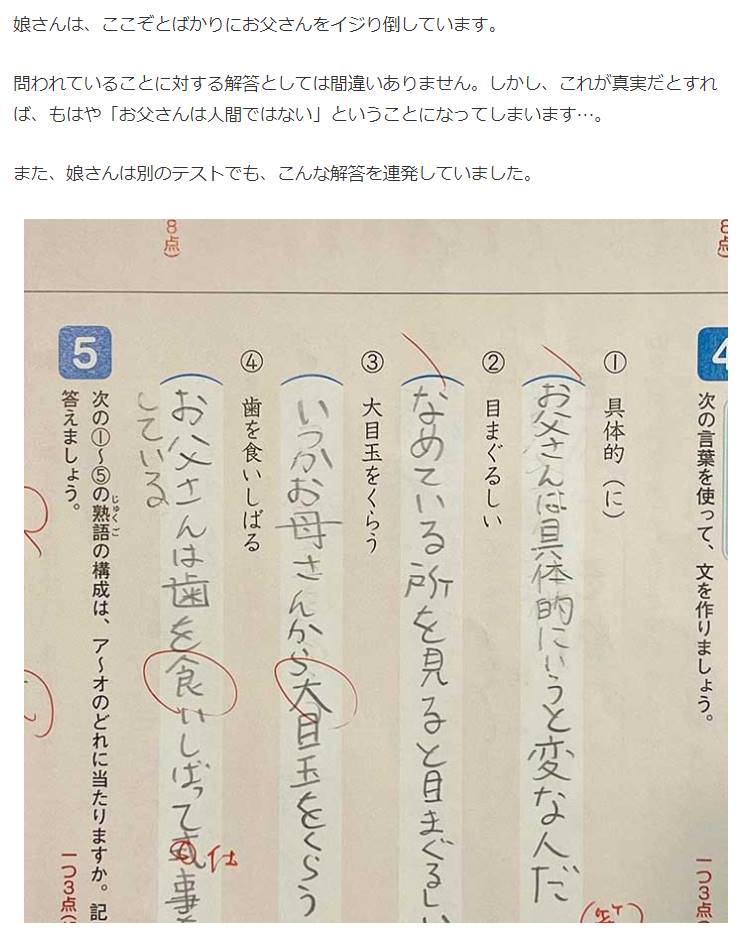 娘さんは、ここぞとばかりにお父さんをイジり倒しています。
問われていることに対する解答としては間違いありません。しかし、これが真実だとすれ
ば、もはや「お父さんは人間ではない」ということになってしまいます…。
また、娘さんは別のテストでも、こんな解答を連発していました。
8点)
8点)
4
次の言葉を使って、文を作りましょう。
一つ3点
① 具体的(に)
お父さんは具体的にいうと変な人だ
② 目まぐるしい
なめている所を見ると目まぐるしい
③ 大目玉をくらう
いつかお母さんから大目玉をくらう
④ 歯を食いしばる
お父さんは歯を食いしばって事を
仕
している
5
次の①〜⑤の熟語の構成は、ア〜オのどれに当たりますか。記
じゅくご
答えましょう。
一つ3点(